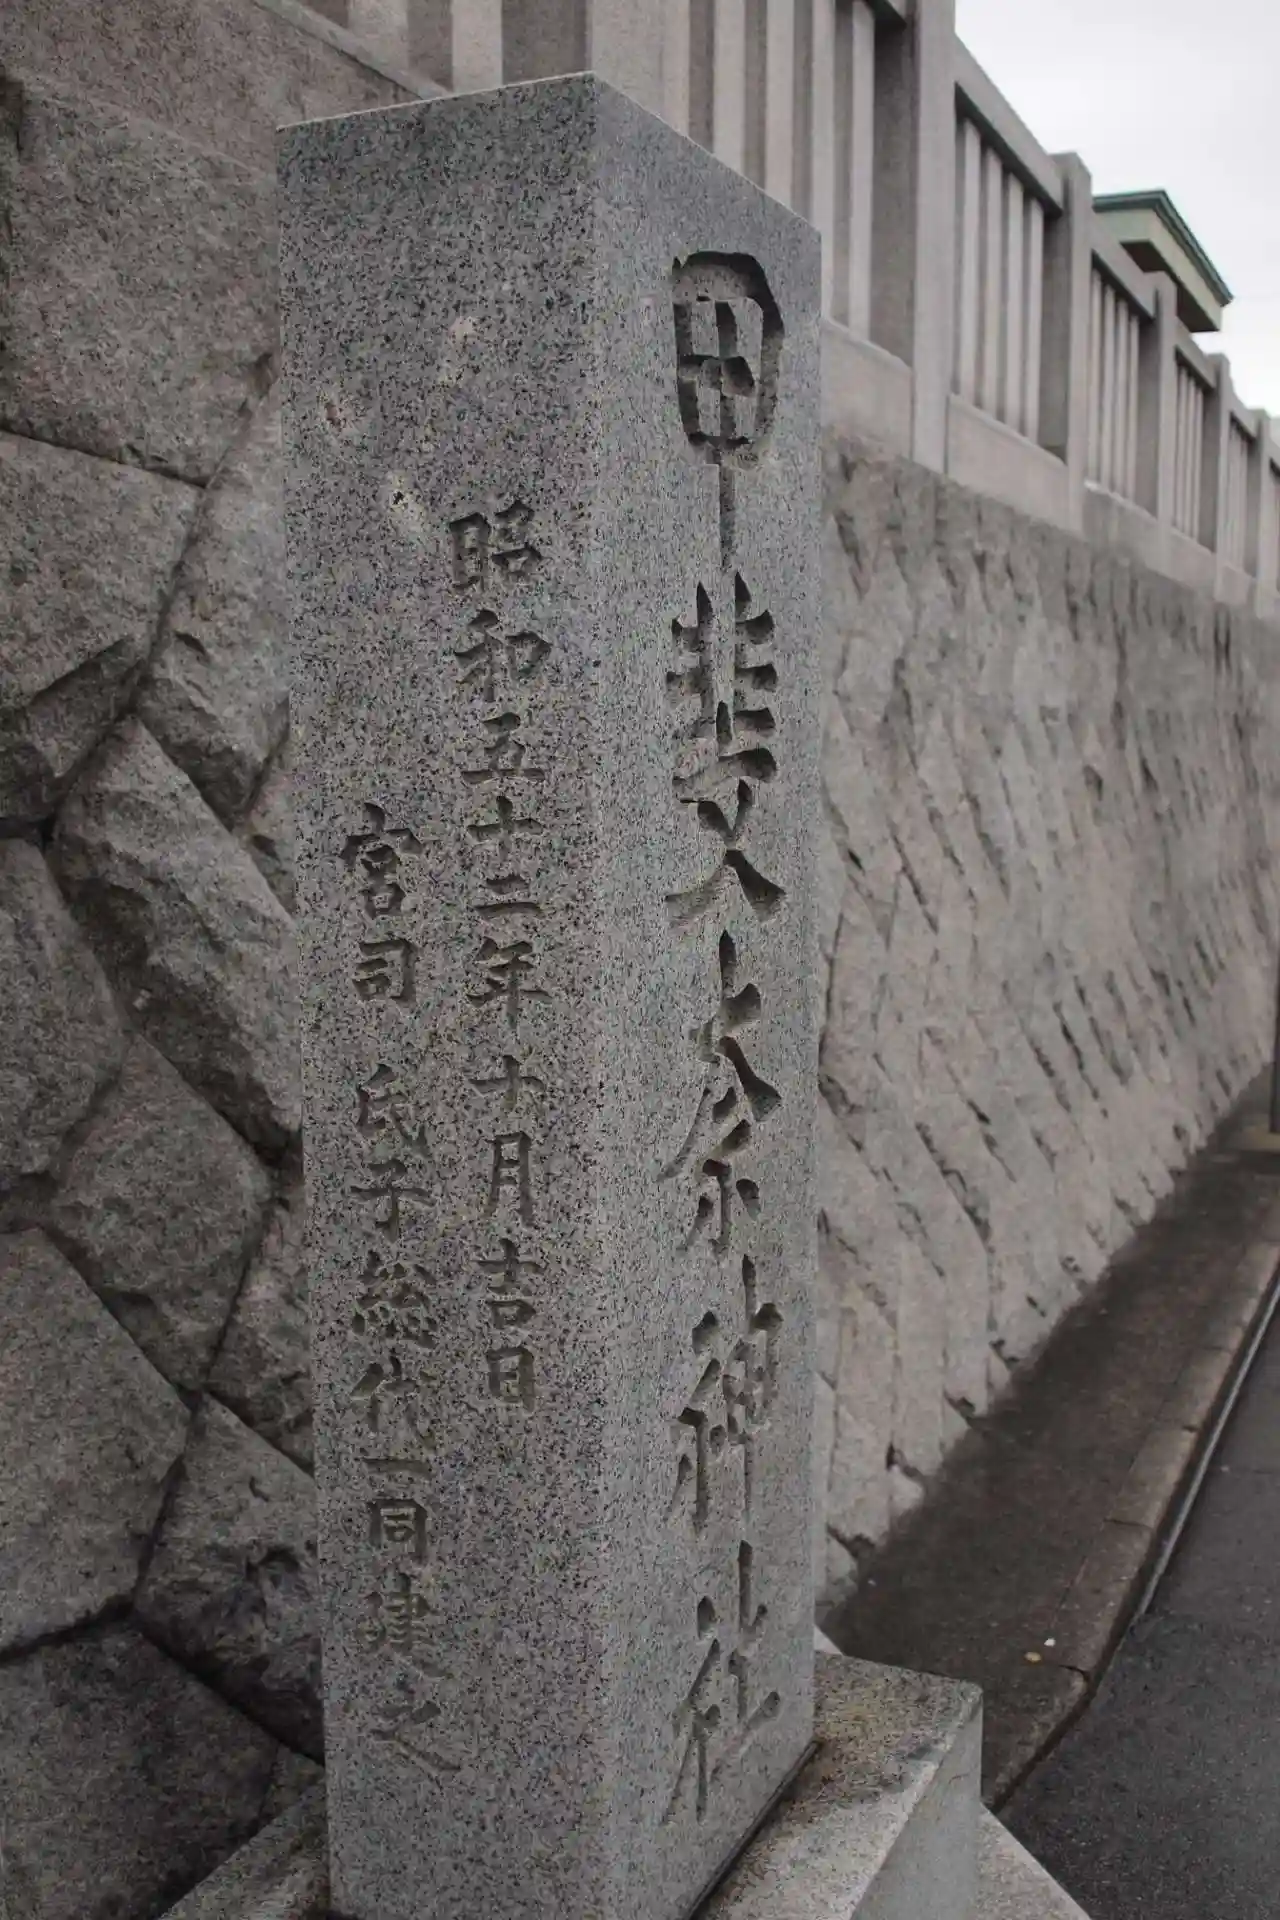 甲斐奈神社
昭和五十二年十月吉日
宮司 氏子総代一同建之